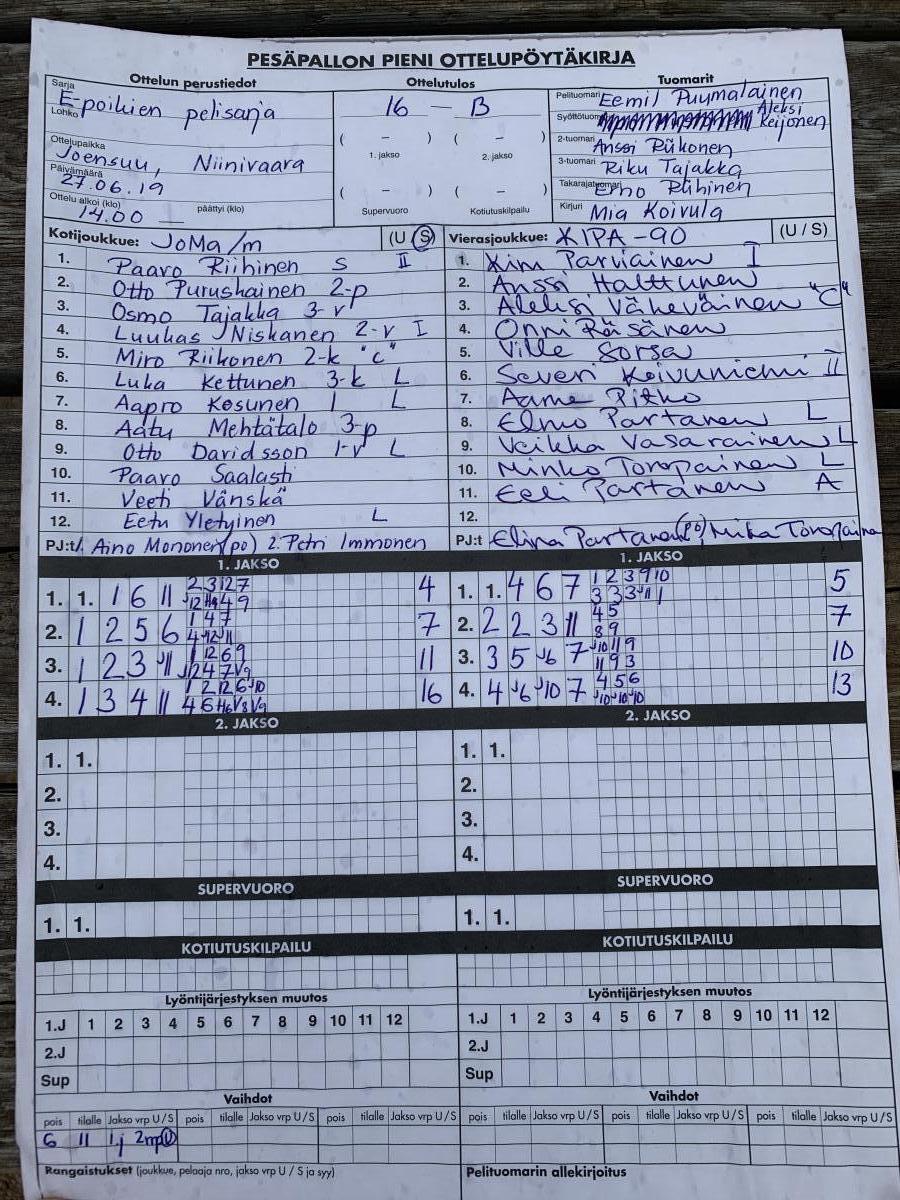 PESÄPALLON PIENI OTTELUPÖYTÄKIRJA
Ottelun perustiedot
Ottelutulos
Tuomarit
Sarja
Lohko
E-poikien pelisarja
16 – B
Pelituomari Eemil Puumalainen
Syöttötuom Aleksi Keijonen
2-tuomari Anssi Riikonen
3-tuomari Riku Tajakka
Takarajatuomari Erno Riihinen
Kirjuri Mia Koivula
( – ) ( – )
1. jakso 2. jakso
( – ) ( – )
Supervuoro Kotiutuskilpailu
Ottelupaikka
Joensuu, Niinivaara
Päivämäärä
27.06.19
Ottelu alkoi (klo) päättyi (klo)
14.00
Kotijoukkue: JoMa/m (U / S)
1. Paavo Riihinen S II
2. Otto Puruskainen 2-p
3. Osmo Tajakka 3-v
4. Luukas Niskanen 2-v I
5. Miro Riikonen 2-k "C"
6. Luka Kettunen 3-k L
7. Aapro Kosunen 1 L
8. Aatu Mehtätalo 3-p
9. Otto Davidsson 1-v L
10. Paavo Saalasti
11. Veeti Vänskä
12. Eetu Yletyinen L
PJ:t 1. Aino Mononen (po) 2. Petri Immonen
Vierasjoukkue: KIPA-90 (U / S)
1. Kim Parviainen I
2. Anssi Halttunen
3. Aleksi Väheväinen "C"
4. Onni Räsänen
5. Ville Sorsa
6. Severi Koivuniemi II
7. Aame Pitko
8. Elmo Partanen L
9. Veikka Vasarainen L
10. Minko Toropainen L
11. Eeli Partanen A
12.
PJ:t Elina Partanen (po), Mika Toropainen
1. JAKSO
1. 1. 1 6 11 4
2. 1 2 5 6 7
3. 1 2 3 11
4. 1 3 4 11 16
1. JAKSO
1. 1. 4 6 7 5
2. 2 2 3 11 7
3. 3 5 J6 7 10
4. 4 J6 J10 7 13
2. JAKSO
1. 1.
2.
3.
4.
2. JAKSO
1. 1.
2.
3.
4.
SUPERVUORO
1. 1.
SUPERVUORO
1. 1.
KOTIUTUSKILPAILU
KOTIUTUSKILPAILU
Lyöntijärjestyksen muutos
1.J 1 2 3 4 5 6 7 8 9 10 11 12
2.J
Sup
Lyöntijärjestyksen muutos
1.J 1 2 3 4 5 6 7 8 9 10 11 12
2.J
Sup
Vaihdot
pois tilalle Jakso vrp U/S pois tilalle Jakso vrp U/S pois tilalle Jakso vrp U/S
6 11 1.j 2mp U
Vaihdot
pois tilalle Jakso vrp U/S pois tilalle Jakso vrp U/S pois tilalle Jakso vrp U/S
Rangaistukset (joukkue, pelaaja nro, jakso vrp U / S ja syy)
Pelituomarin allekirjoitus